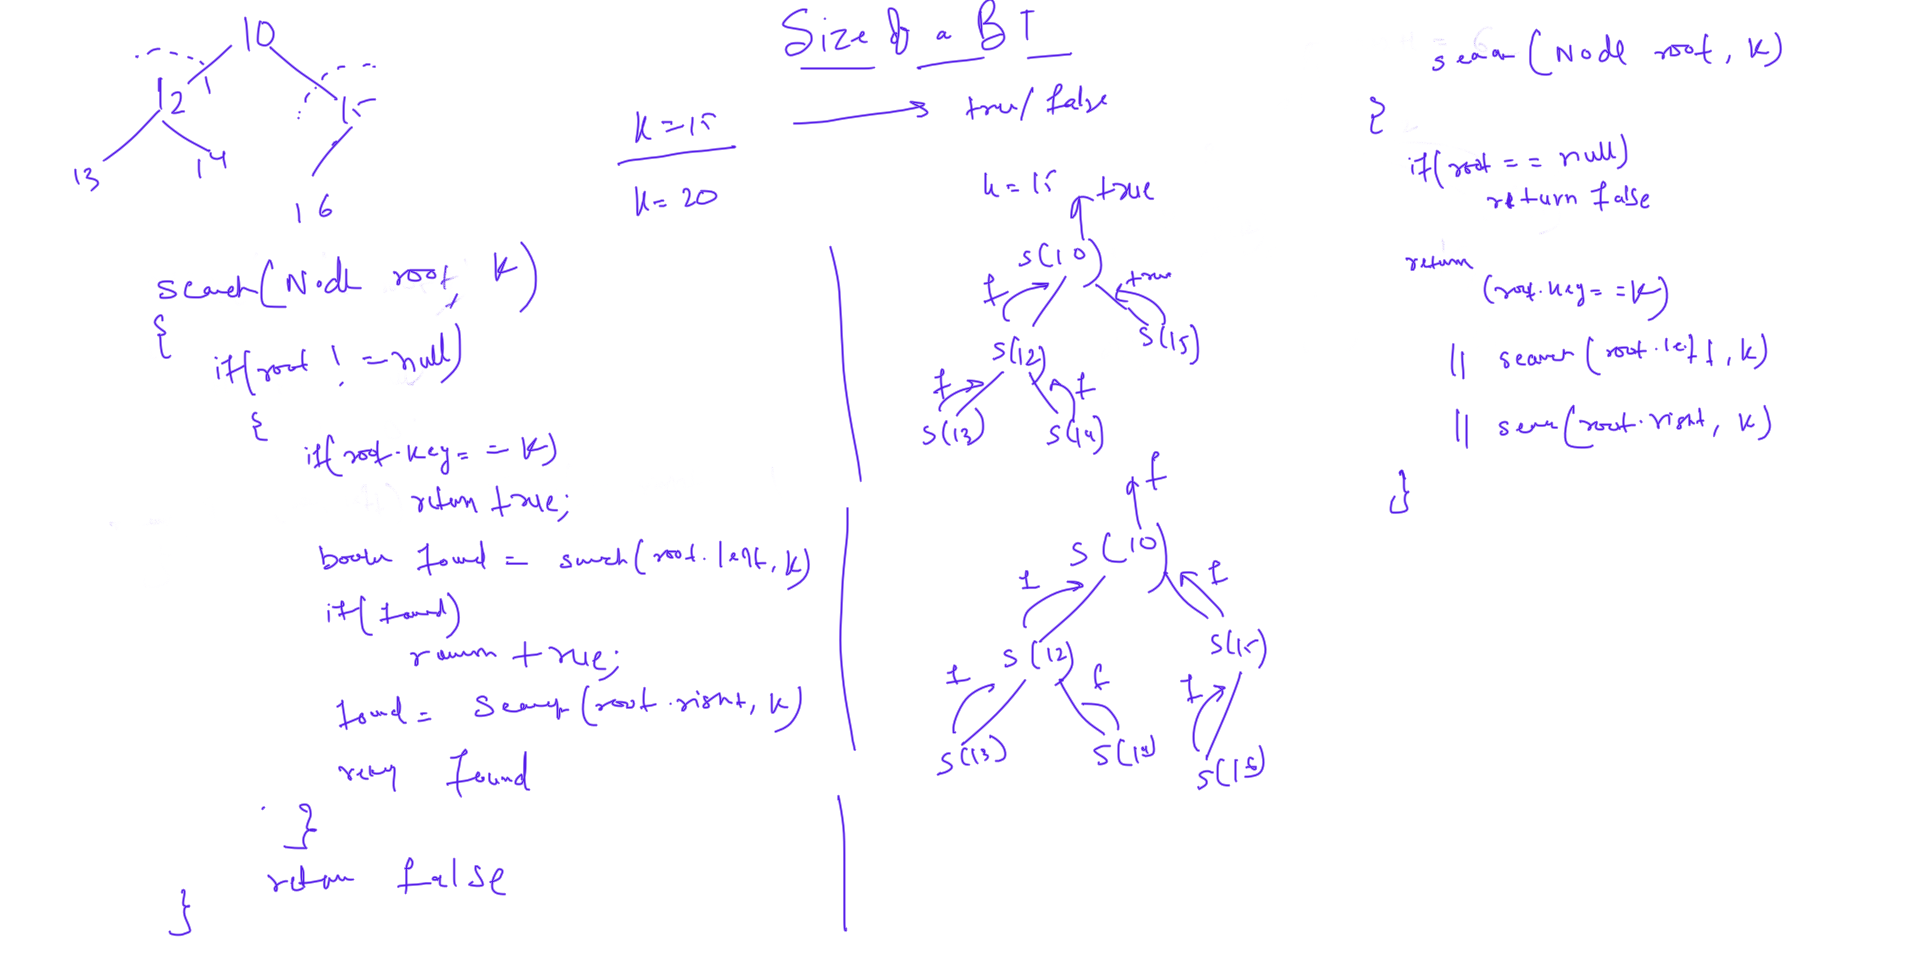 Size of a BT
10
12
15
13
14
16
k=15
true/false
k=20
search(Node root, k)
{
if(root != null)
{
if(root.key == k)
return true;
boolen found = search(root.left, k)
if(found)
return true;
found = search(root.right, k)
return found
}
return false
}
k=15
true
S(10)
f
true
S(12)
S(15)
f
f
S(13)
S(14)
f
S(10)
f
f
S(12)
S(15)
f
f
f
S(13)
S(14)
S(16)
search(Node root, k)
{
if(root == null)
return false
return
(root.key == k)
|| search(root.left, k)
|| search(root.right, k)
}